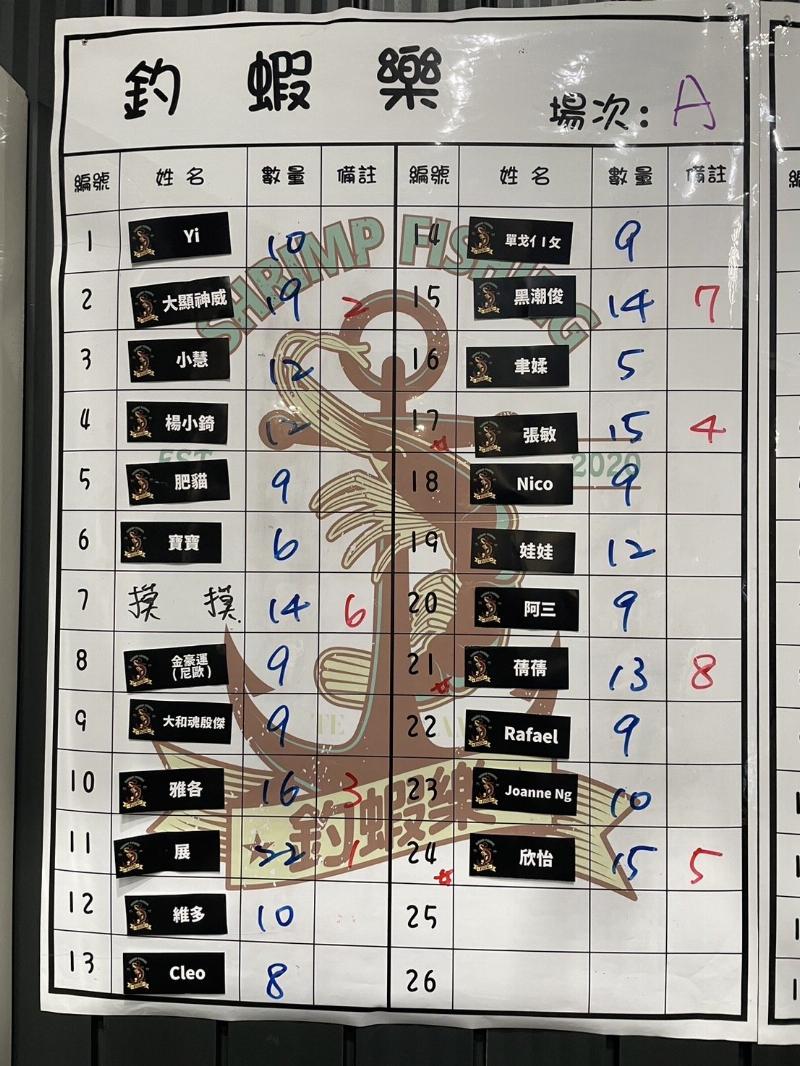 釣蝦樂
場次: A
編號 姓名 數量 備註 編號 姓名 數量 備註
1 Yi 10 14 單戈亻丨攵 9
2 大顯神威 19 2 15 黑潮俊 14 7
3 小慧 12 16 聿媃 5
4 楊小錡 12 17 張敏 15 4
5 肥貓 9 18 Nico 9
6 寶寶 6 19 娃娃 12
7 摸摸 14 6 20 阿三 9
8 金豪運(尼歐) 9 21 蒨蒨 13 8
9 大和魂殷傑 9 22 Rafael 9
10 雅各 16 3 23 Joanne Ng 10
11 展 22 1 24 欣怡 15 5
12 維多 10 25
13 Cleo 8 26
SHRIMP FISHING
EST 2020
釣蝦樂